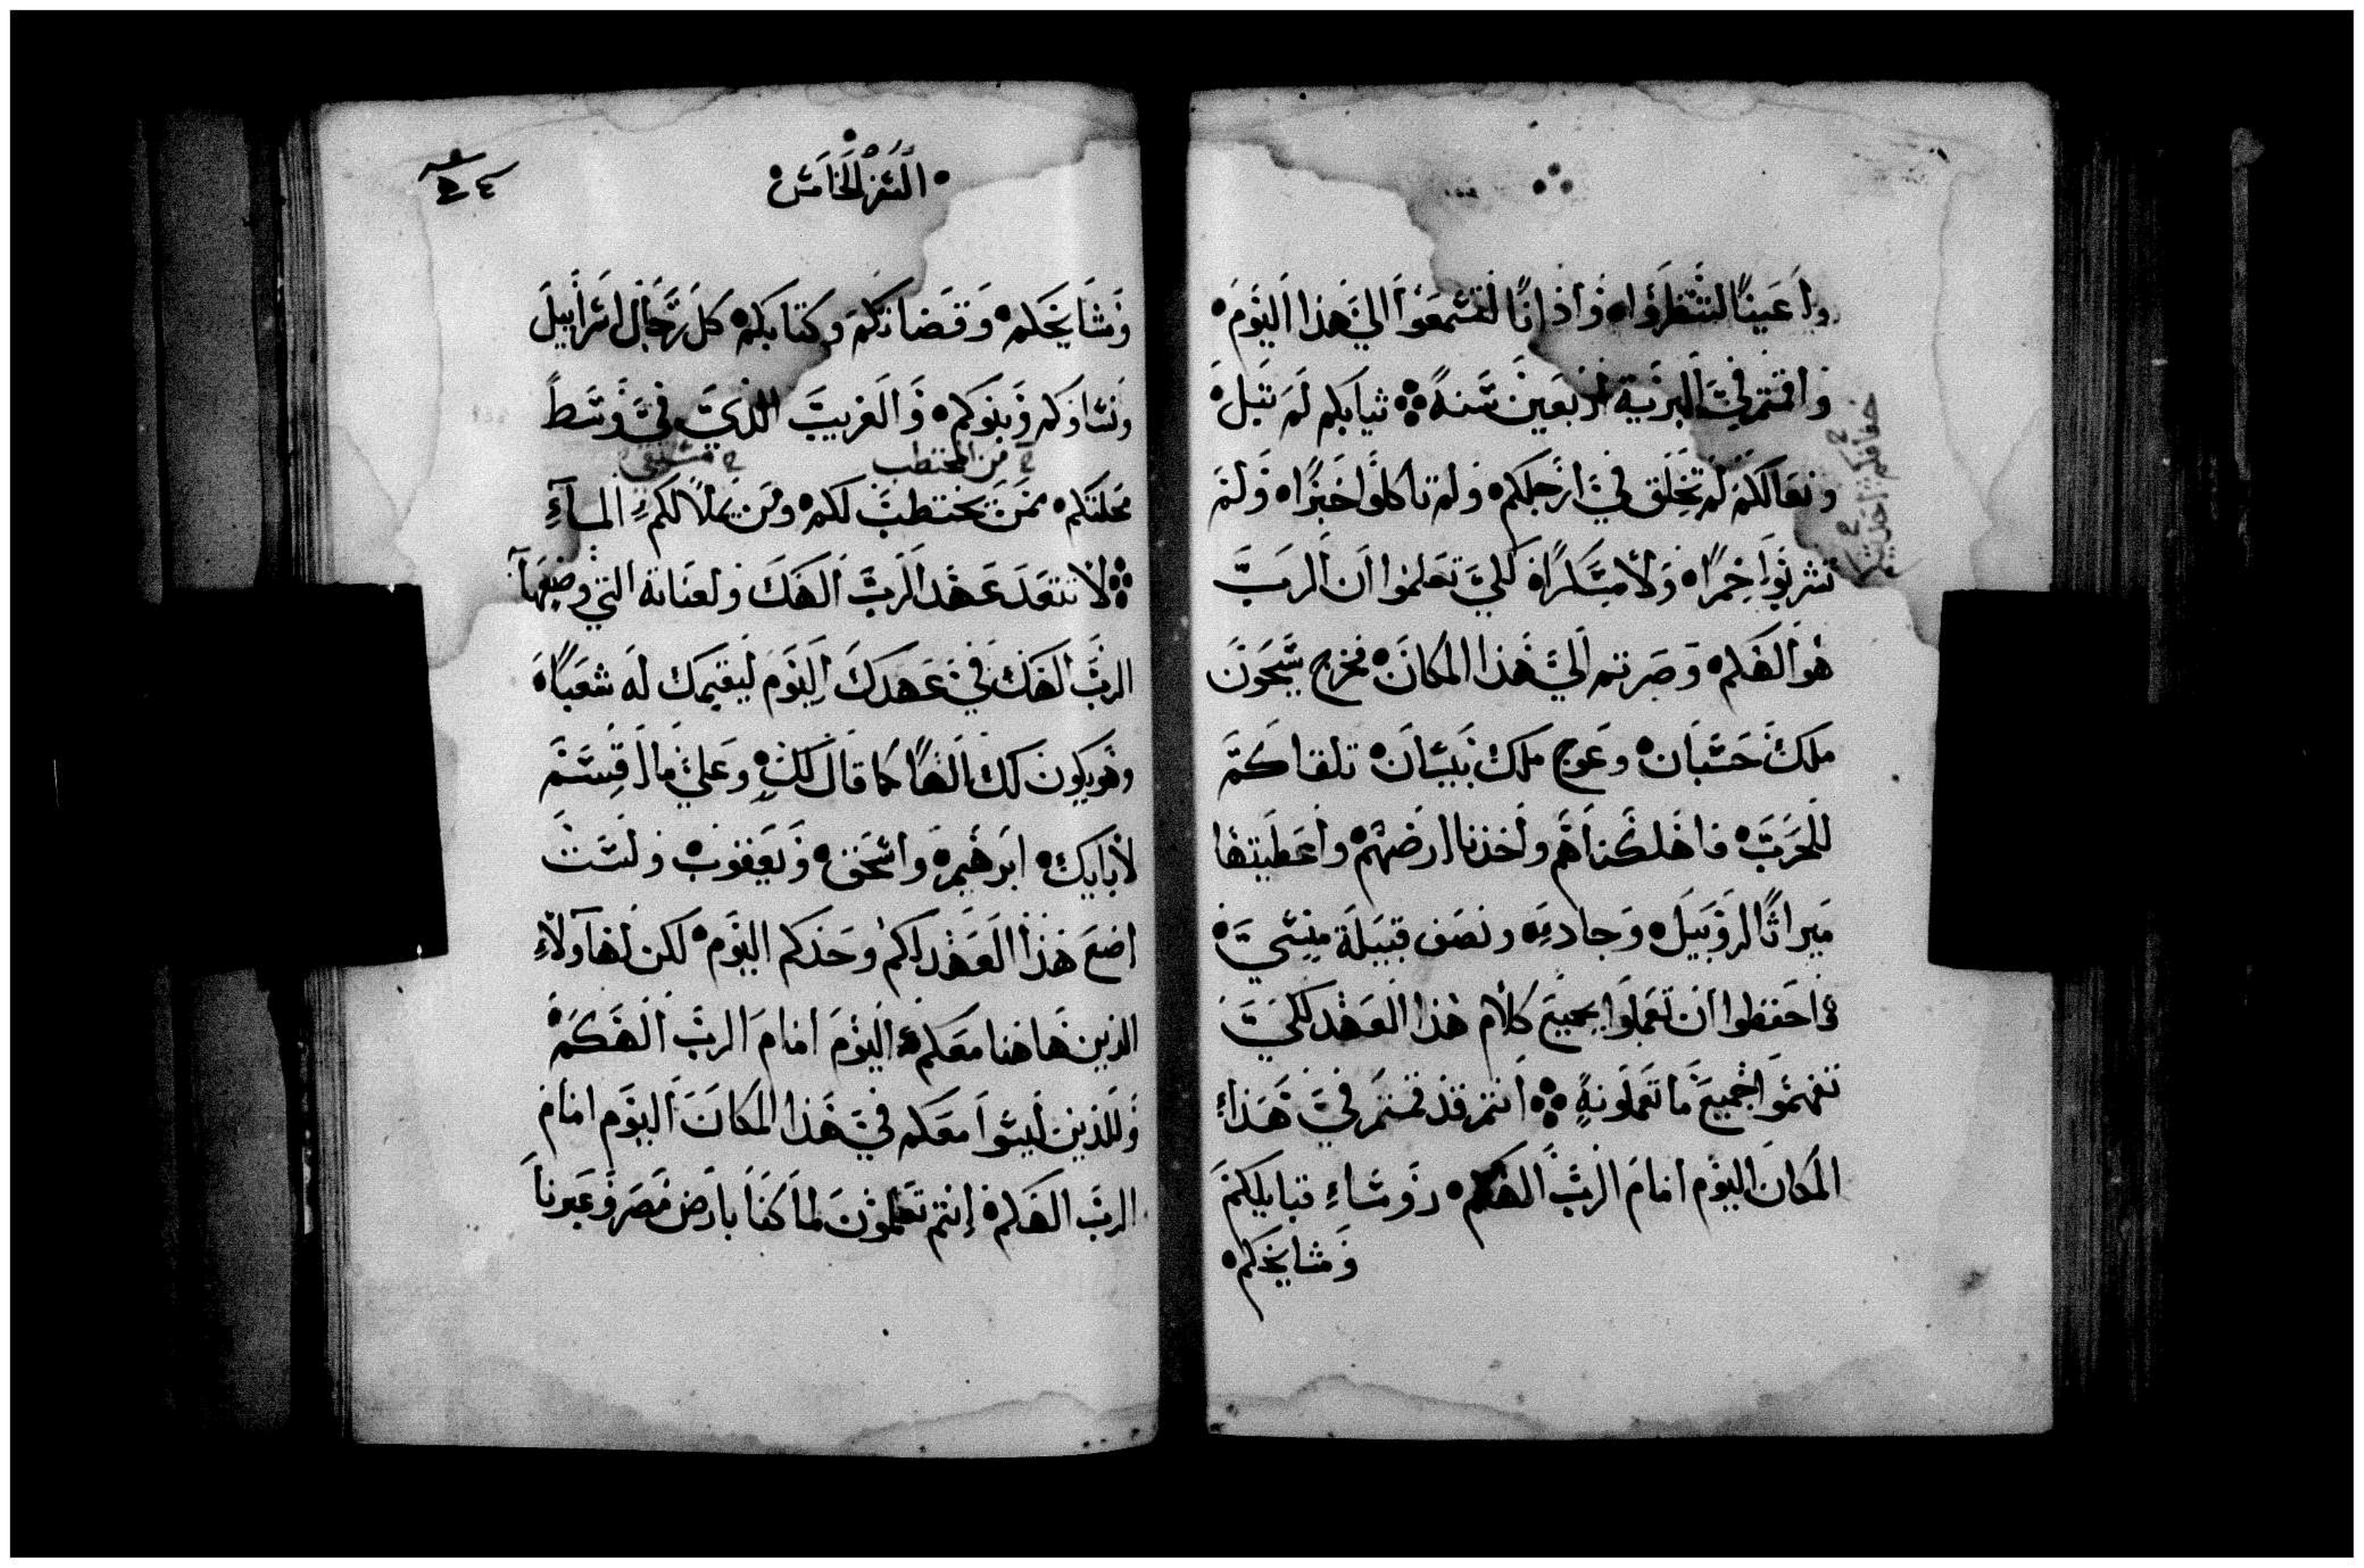 واعينًا لتنظروا، واذانًا لتسمعوا الي هذا اليوم،
واقمتم في البرية اربعين سنة ثيابكم لم تبل
ونعالكم لم تخلق في ارجلكم، ولم تاكلوا خبزًا، ولم
تشربوا خمرًا، ولا مسكرًا، لكي تعلموا ان الرب
هو الهكم، وصرتم الي هذا المكان، فخرج سيحون
ملك حسبان، وعوج ملك بيسان، تلقاكم
للحرب، فاهلكناهم واخذنا ارضهم، واعطيتها
ميراثًا لروبيل، وجاد، ونصف قبيلة منسي،
فاحفظوا ان تعملوا بجميع كلام هذا العهد لكي
تفهموا جميع ما تعملونه انتم قد قمتم في هذا
المكان اليوم امام الرب الهكم، روساء قبايلكم
ومشايخكم،
السفر الخامس
ومشايخكم، وقضاتكم، وكتابكم، كل رجال اسراييل
ونساوكم وبنوكم، والغريب الذي في وسط
من المحتطب
محلتكم، ممن يحتطب لكم، ومن يملا لكم الماء
لا تتعد عهد الرب الهك ولعناته التي وضعها
الرب الهك في عهدك اليوم ليقيمك له شعبًا،
وهو يكون لك الهًا كما قال لك، وعلي ما اقسم
لابايك، ابرهيم، واسحق، ويعقوب، ولست
اضع هذا العهد لكم وحدكم اليوم، لكن لهاولاء
الذين هاهنا معكم، اليوم امام الرب الهكم،
وللذين ليسوا معكم في هذا المكان اليوم امام
الرب الهكم، انتم تعلمون لما كنا بارض مصر وعبرنا